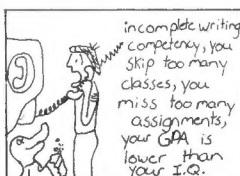 incomplete writing
competency, you
skip too many
classes, you
miss too many
assignments,
your GPA is
lower than
your I.Q.